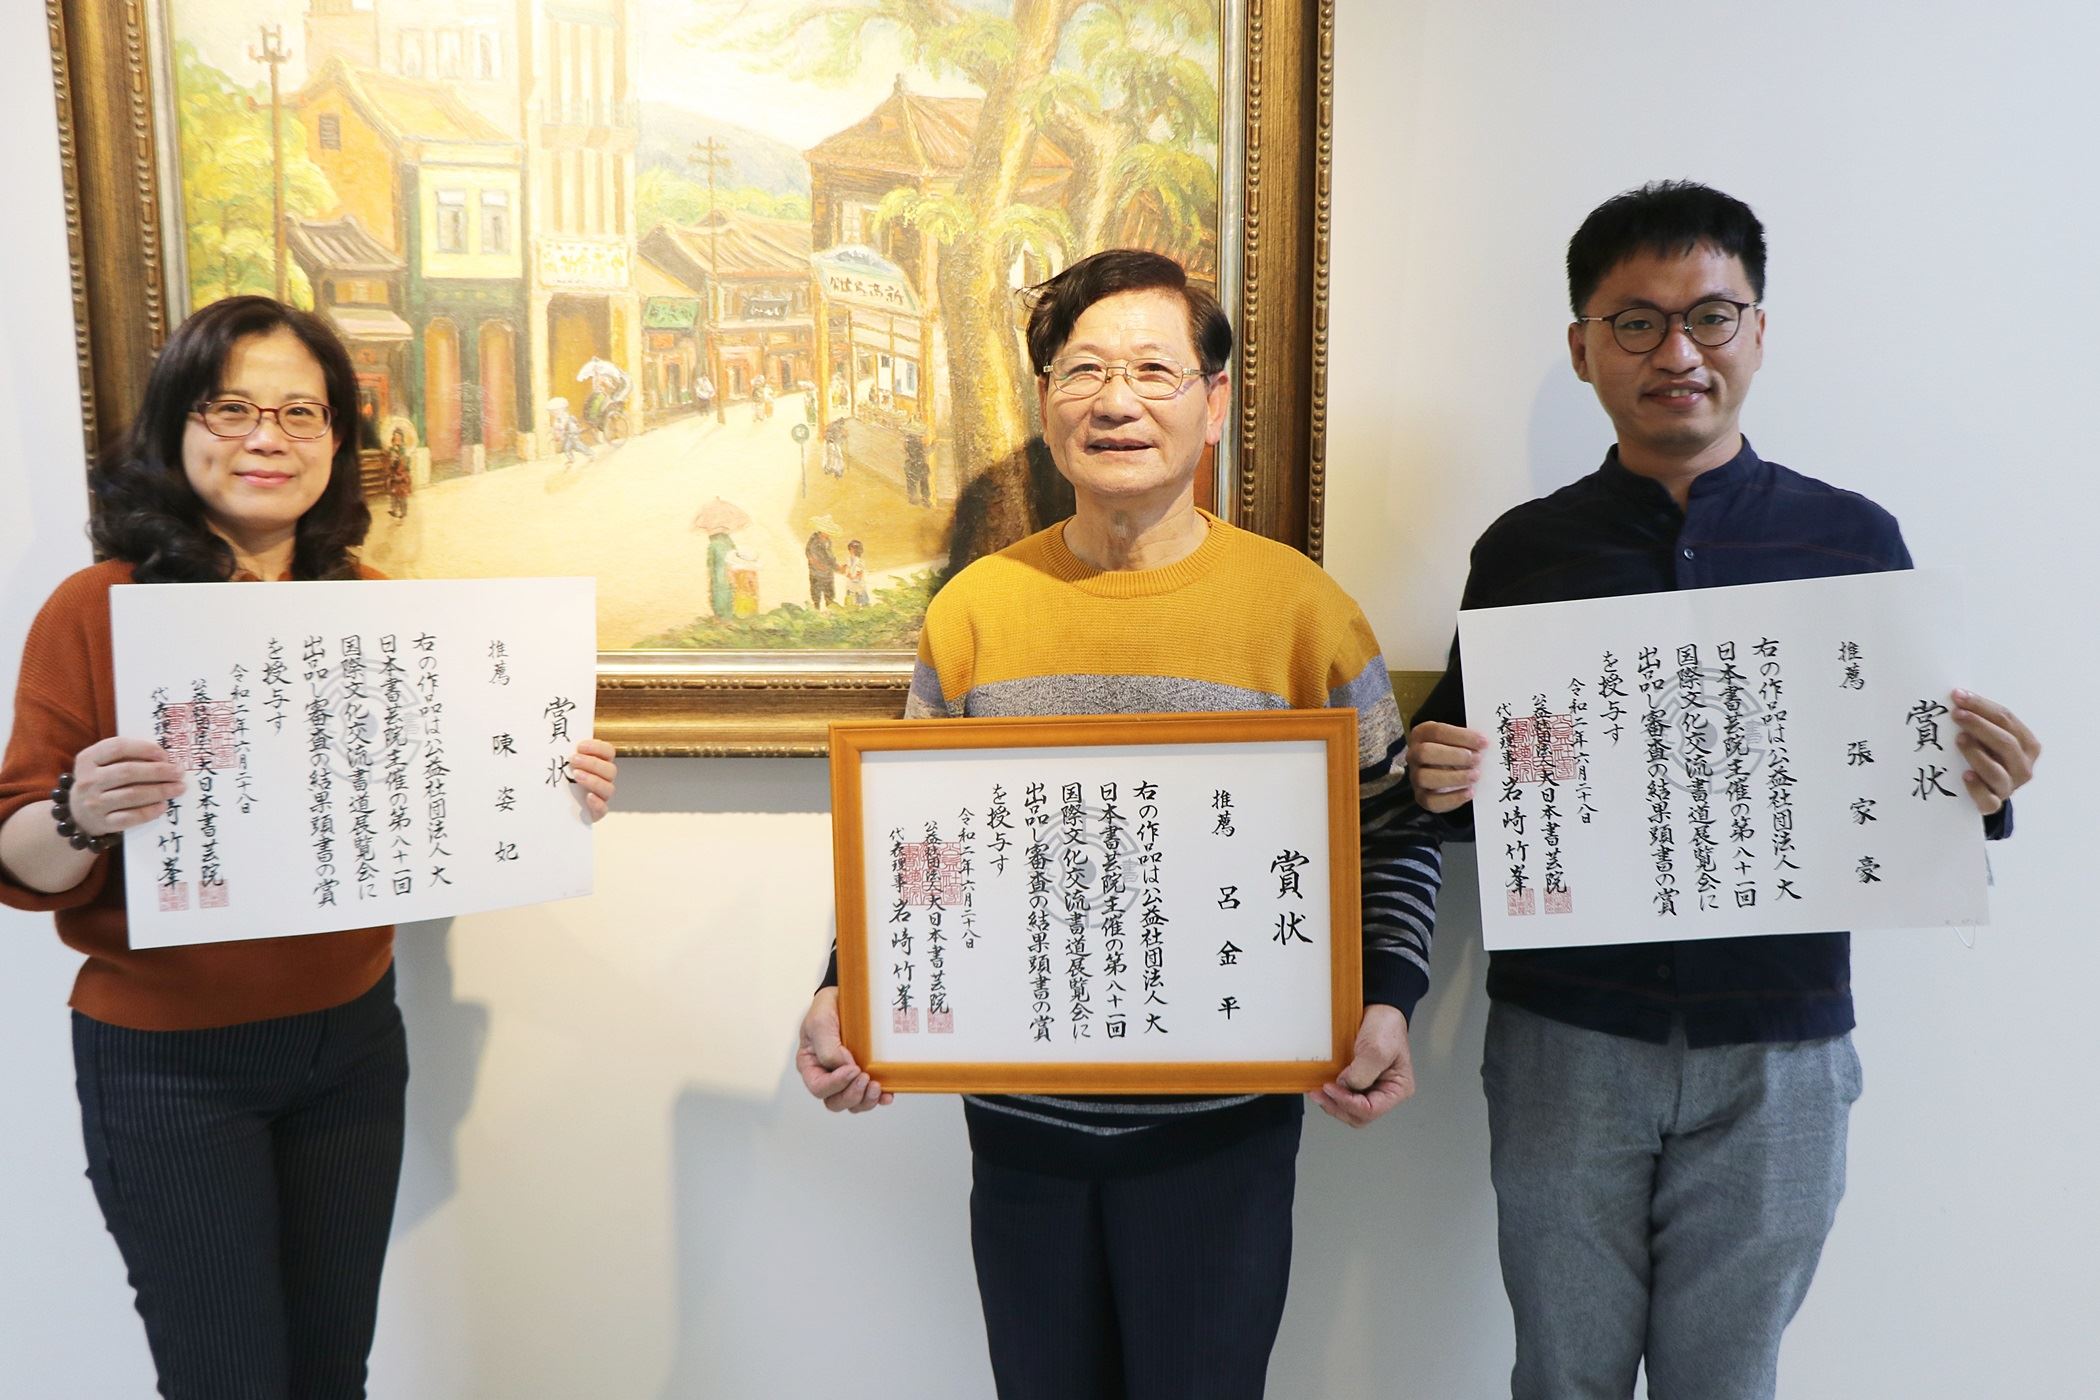 賞状
推薦 陳姿妃
右の作品は公益社団法人大
日本書芸院主催の第八十一回
国際文化交流書道展覧会に
出品し審査の結果頭書の賞
を授与す
令和二年六月二十八日
公益社団法人大日本書芸院
代表理事 岩崎竹峯
賞状
推薦 呂金平
右の作品は公益社団法人大
日本書芸院主催の第八十一回
国際文化交流書道展覧会に
出品し審査の結果頭書の賞
を授与す
令和二年六月二十八日
公益社団法人大日本書芸院
代表理事 岩崎竹峯
賞状
推薦 張家豪
右の作品は公益社団法人大
日本書芸院主催の第八十一回
国際文化交流書道展覧会に
出品し審査の結果頭書の賞
を授与す
令和二年六月二十八日
公益社団法人大日本書芸院
代表理事 岩崎竹峯